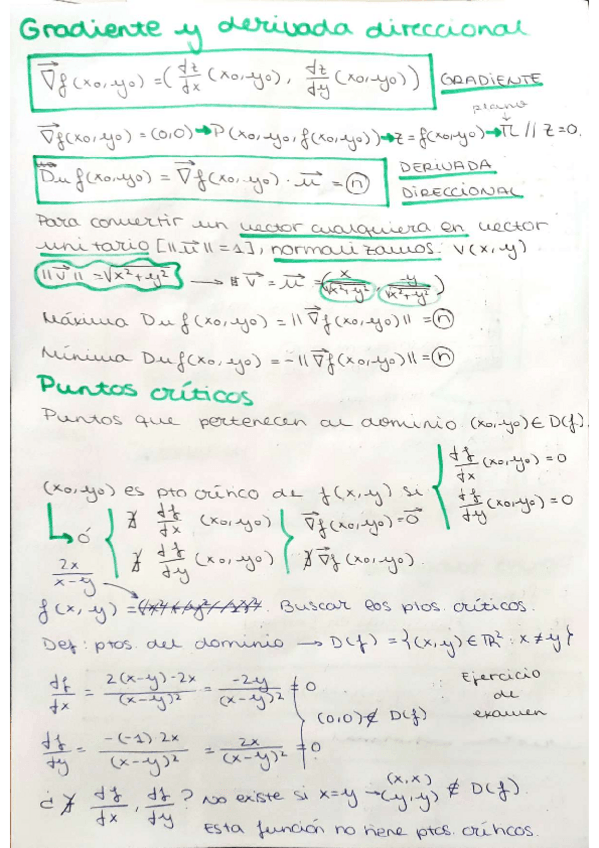 Gradiente y derivada direccional
∇⃗f(x₀,y₀) = (dz/dx (x₀,y₀), dz/dy (x₀,y₀)) GRADIENTE
plano
∇⃗f(x₀,y₀) = (0,0) → P(x₀,y₀,f(x₀,y₀)) → z = f(x₀,y₀) → π // z=0.
D⃗u f(x₀,y₀) = ∇⃗f(x₀,y₀) · u⃗ = (n) DERIVADA DIRECCIONAL
Para convertir un vector cualquiera en vector
unitario [||u⃗|| = 1], normalizamos. V(x,y)
||v⃗|| = √x²+y² → v⃗ = u⃗ = (x/√x²+y², -y/√x²+y²)
Máxima Du f(x₀,y₀) = ||∇⃗f(x₀,y₀)|| = (n)
Mínima Du f(x₀,y₀) = -||∇⃗f(x₀,y₀)|| = (n)
Puntos críticos
Puntos que pertenecen al dominio (x₀,y₀) ∈ D(f)
(x₀,y₀) es pto crítico de f(x,y) si { df/dx (x₀,y₀) = 0
df/dy (x₀,y₀) = 0
ó { ∄ df/dx (x₀,y₀) { ∇⃗f(x₀,y₀) = 0⃗
∄ df/dy (x₀,y₀) ∄ ∇⃗f(x₀,y₀)
2x/x-y
f(x,y) = . Buscar los ptos. críticos.
Def: ptos. del dominio → D(f) = {(x,y) ∈ ℝ² : x ≠ y}
df/dx = 2(x-y)-2x/(x-y)² = -2y/(x-y)² = 0
(0,0) ∉ D(f)
Ejercicio
de
examen
df/dy = -(-1)·2x/(x-y)² = 2x/(x-y)² = 0
¿∄ df/dx, df/dy? No existe si x=y → (x,x) (y,y) ∉ D(f).
Esta función no tiene ptos. críticos.